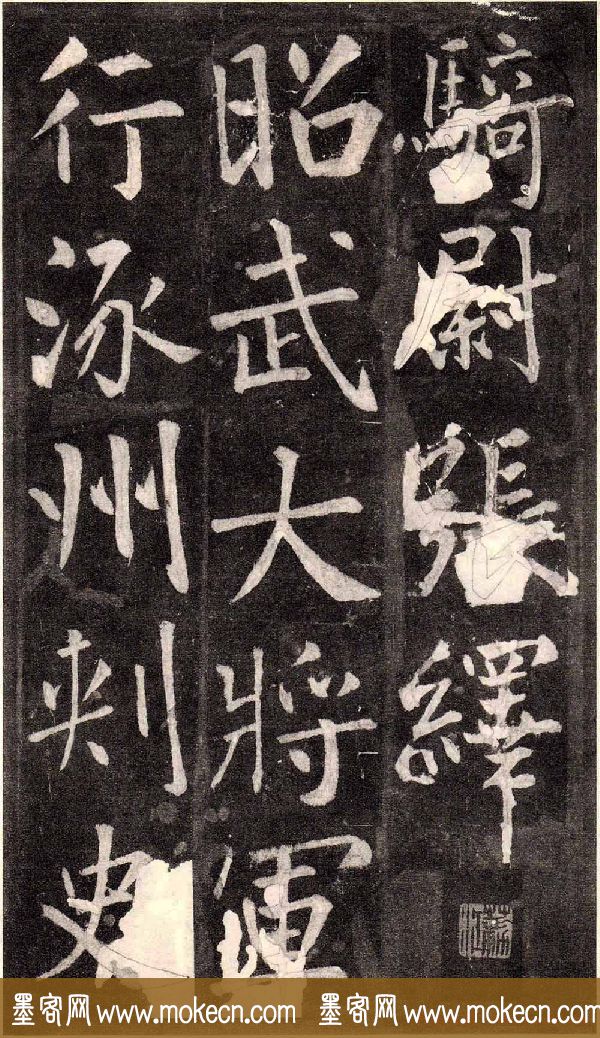 騎尉張繹
昭武大將軍
行涿州刺史
墨客网 www.mokecn.com 墨客网 www.mokecn.com